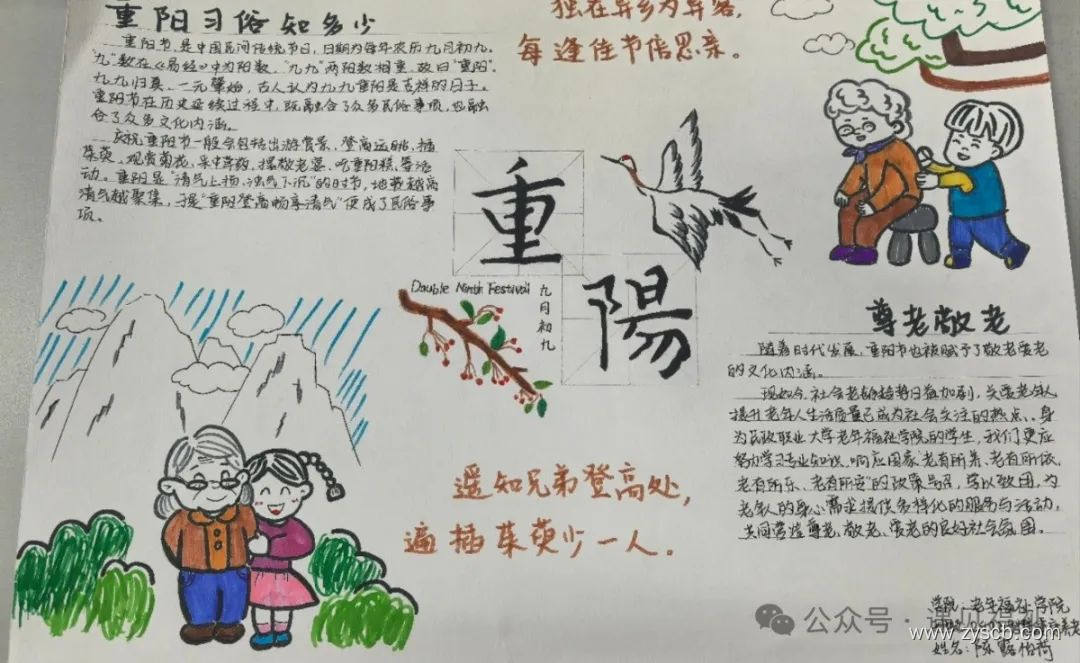 重阳习俗知多少
重阳节，是中国民间传统节日，日期为每年农历九月初九。
"九"数在《易经》中为阳数，"九九"两阳数相重，故曰"重阳"。
九九归真，一元肇始，古人认为九九重阳是吉祥的日子。
重阳节在历史延续过程中，既融合了众多民俗事项，也融
合了众多文化内涵。
庆祝重阳节一般会包括出游赏景、登高远眺、插
茱萸、观赏菊花、采中草药、摆敬老宴、吃重阳糕等活
动。重阳是"清气上扬、浊气下沉"的时节，地势越高
清气越聚集，于是"重阳登高畅享清气"便成了民俗事
项。
独在异乡为异客，
每逢佳节倍思亲。
重
陽
Double Ninth Festival
九月初九
遥知兄弟登高处，
遍插茱萸少一人。
尊老敬老
随着时代发展，重阳节也被赋予了敬老爱老
的文化内涵。
现如今，社会老龄趋势日益加剧，关爱老人，
提升老年人生活质量已成为社会关注的热点，身
为民政职业大学老年福祉学院的学生，我们更应
努力学习专业知识，响应国家"老有所养、老有所依、
老有所乐、老有所安"的政策号召，学以致用，为
老人的身心需求提供多样化的服务与活动，
共同营造尊老、敬老、爱老的良好社会氛围。
学院：老年福祉学院
姓名：陈
公众号
www.zyscb.com